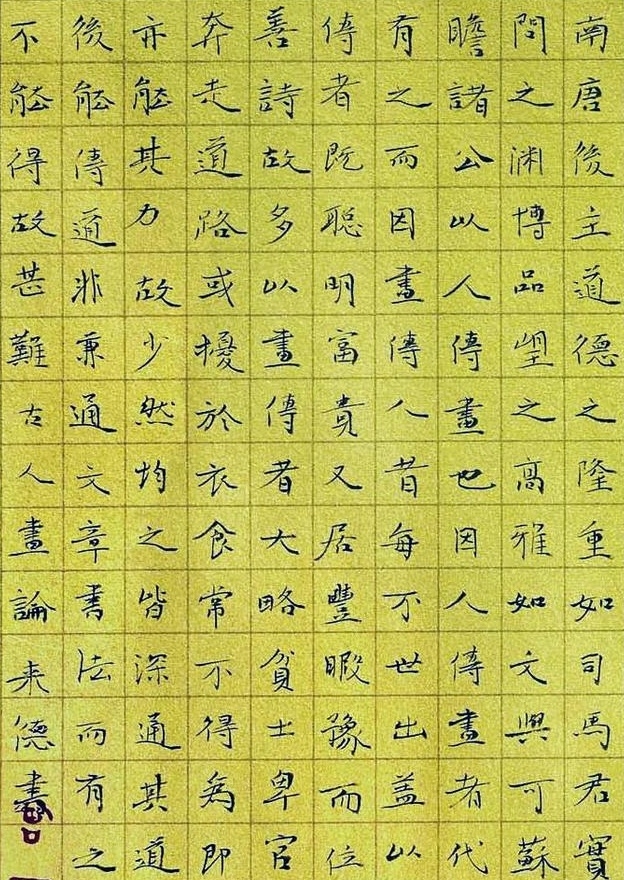 南唐後主道德之隆重如司馬君實
問之渊博品望之高雅如文與可蘇
瞻諸公以人傳畫也因人傳畫者代
有之而因畫傳人者每不世出盖以
傳者既聰明富貴又居豐暇豫而位
善詩故多以畫傳者大略貧士卑官
奔走道路或擾於衣食常不得為即
亦能其力故少然均之皆深通其道
後能傳道非兼通文章書法而有之
不能得故甚難古人畫論来德書